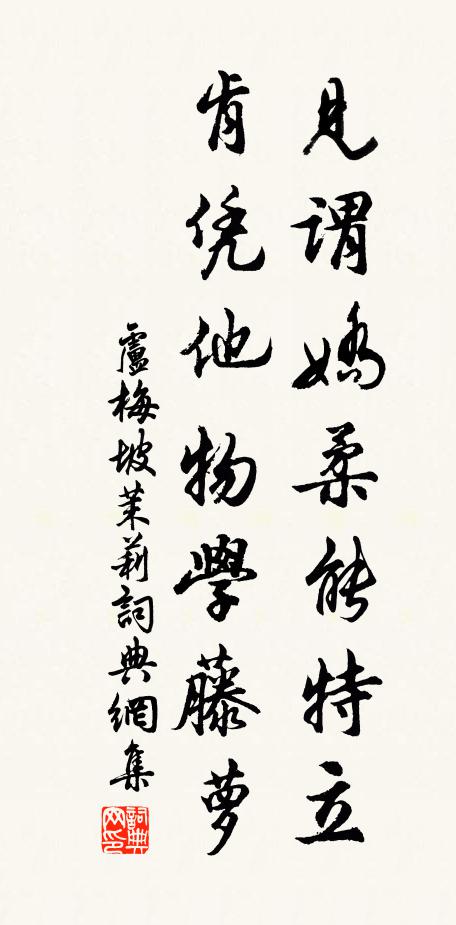 見謂嬌柔能特立
肯凭他物學藤萝
盧梅坡茉莉詞典網集
詞典
网印